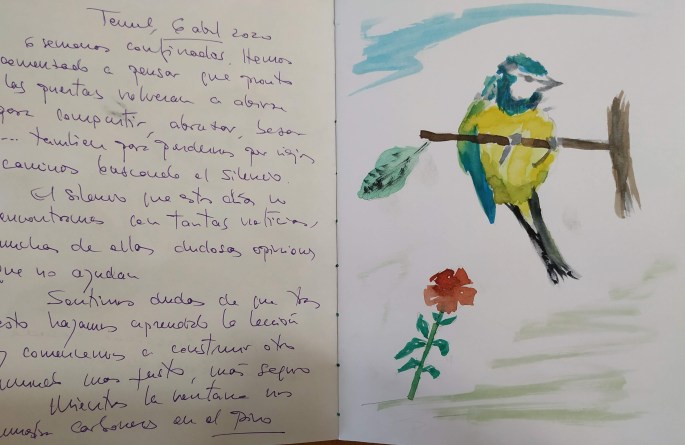 Teruel, 6 abril 2020
6 semanas confinados. Hemos
comenzado a pensar que pronto
las puertas volveran a abrirse
para compartir, abrazar, besar
... tambien para perdernos por viejos
caminos buscando el silencio.
El silencio que estos días no
encontramos con tantas noticias,
muchas de ellas dudosas opiniones
que no ayudan
Sentimos dudas de que tras
esto hayamos aprendido la lección
y comencemos a construir otro
mundo mas justo, más seguro
Mientras la ventana nos
muestra carboneros en el pino